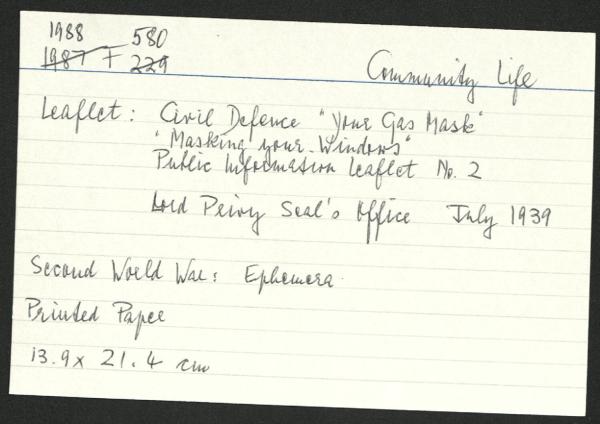 1988 580
1987 + 229
Community Life
Leaflet: Civil Defence "Your Gas Mask"
"Masking your Windows"
Public Information Leaflet No. 2
Lord Privy Seal's Office July 1939
Second World War: Ephemera
Printed Paper
13.9 x 21.4 cm